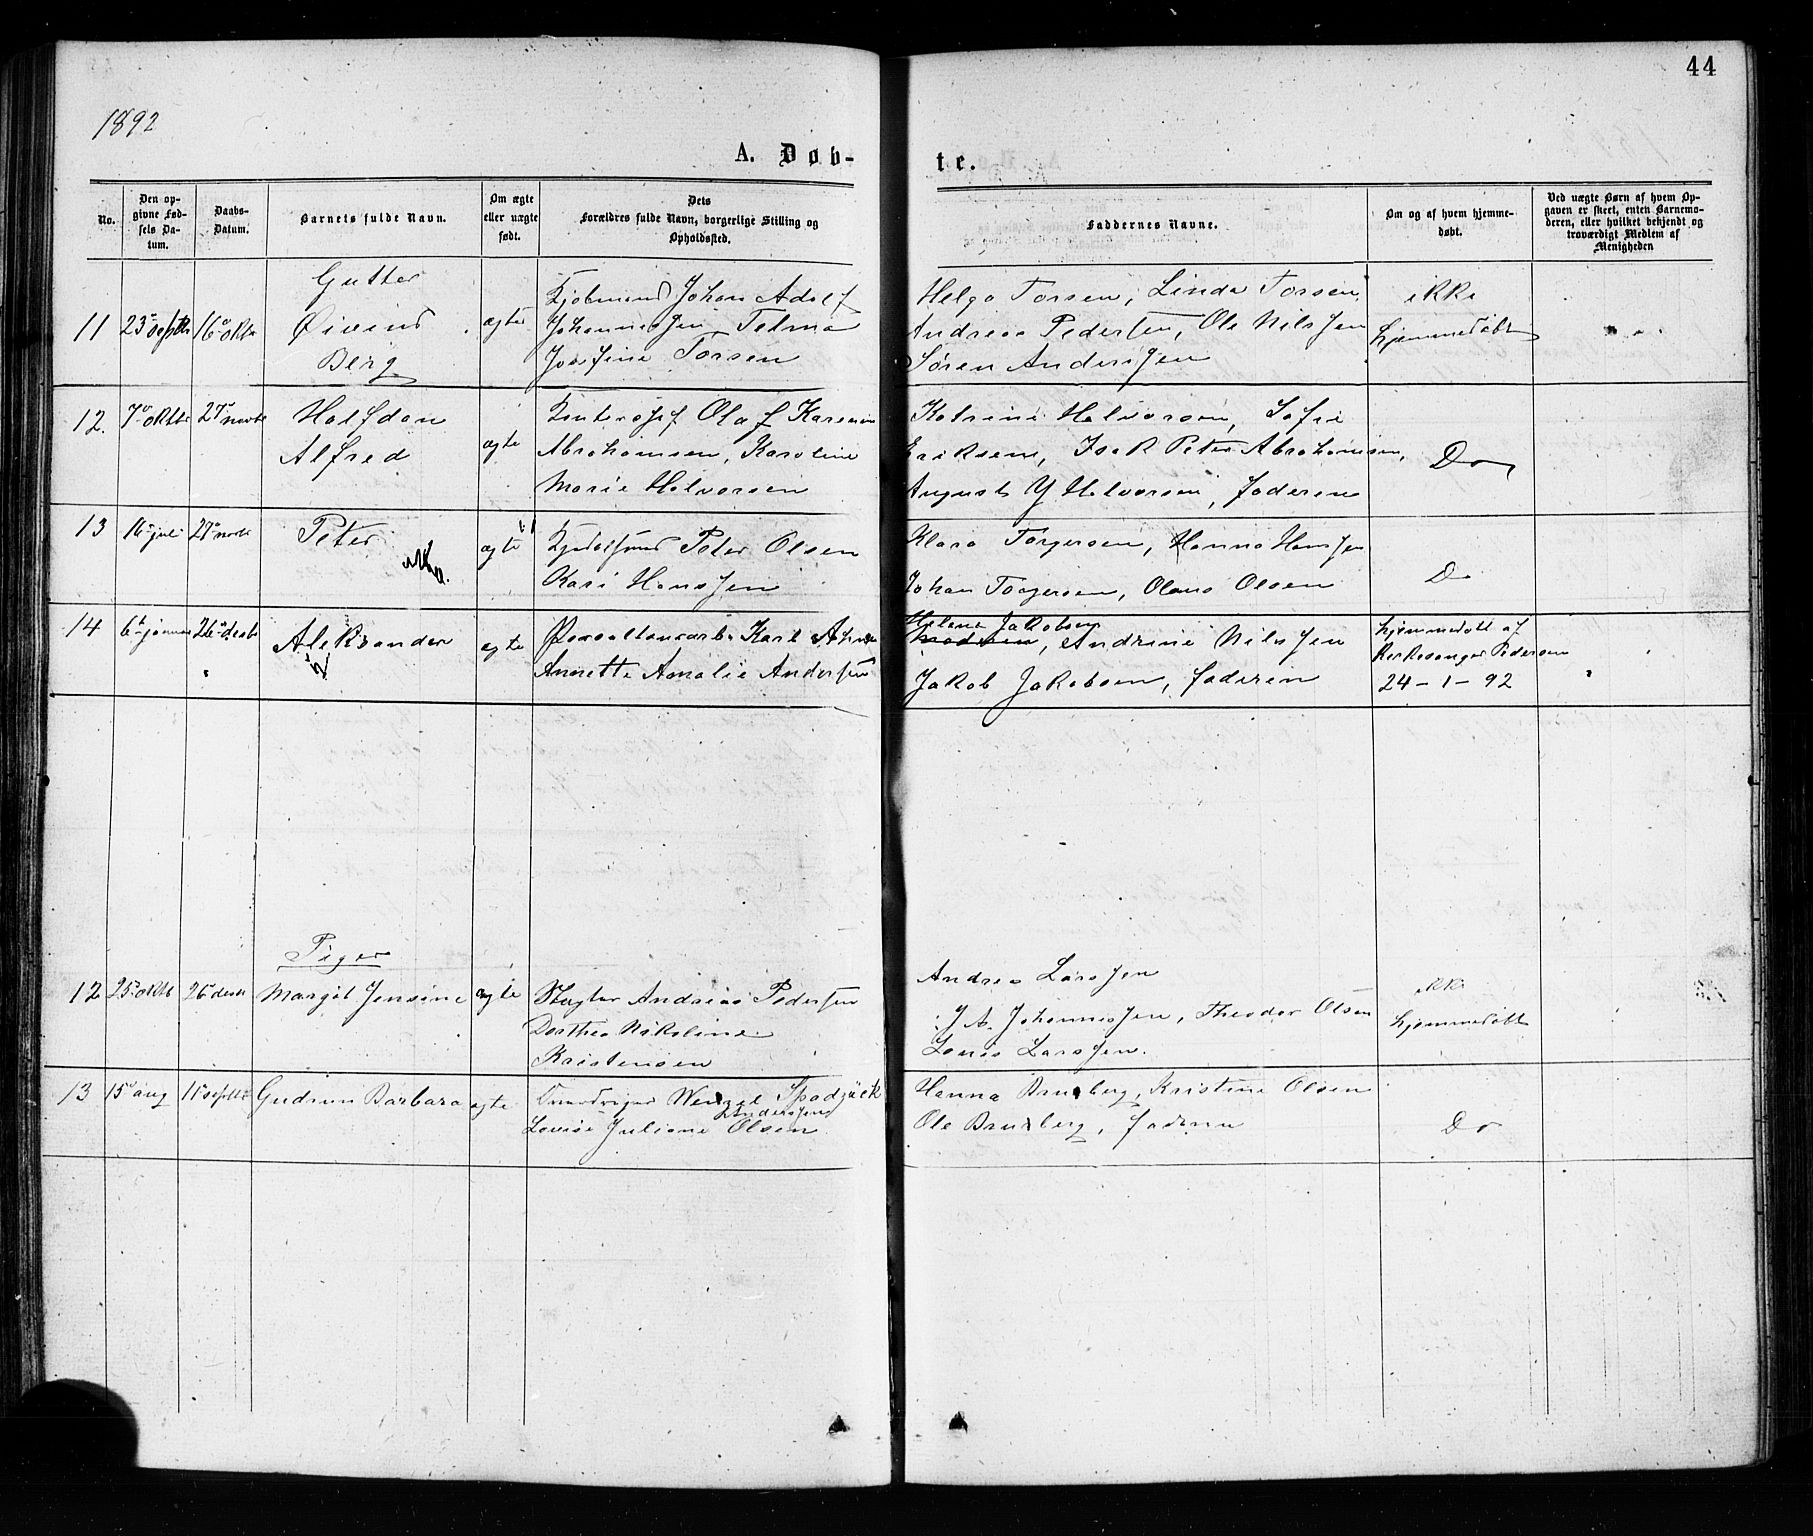 44
1892
A. Døb-
te.
No.
Den op-
givne Fød-
sels Da-
tum.
Daabs-
Datum.
Barnets fulde Navn.
Om ægte
eller uægte
født.
Dets
Forældres fulde Navn, borgerlige Stilling og
Opholdssted.
Faddernes Navne.
Om og af hvem hjemme-
døbt.
Ved uægte Børn af hvem Op-
gaven er skeet, enten Barnemo-
deren, eller hvilket bekjendt og
troværdigt Medlem af
Menigheden
Gutter
11
23 septbr
16 oktr
Øivind
Berg
ægte
Kjøbmand Johan Adolf
Johannesen Telma
Josefine Torsen
Helga Torsen, Linda Torsen
Andreas Pedersen, Ole Nilssen
Søren Anderssen
ikke
hjemmedøbt
12.
7 oktbr
27 novbr
Halfdan
Alfred
ægte
Olaf
Abrahamsen, Karoline
Marie Halvorsen
Katrine Halvorsen, Sofie
Eriksen, Isak Peter Abrahamsen,
August Halvorsen, faderen
Do
13
16 juli
27 novbr
Peter
ægte
Peter Olsen
Kari Hanssen
Klara Torgersen, Hanna Hanssen
Johan Torgersen, Olaus Olsen
Do
14
6 januar
26 desbr
Aleksander
ægte
Karl
Annette Amalie Anderssen
Helene Jakobsen
moderen, Andrine Nilssen
Jakob Jakobsen, faderen
hjemmedøbt af
Kirkesanger Pedersen
24-1-92
Piger
12
25 oktb
26 desbr
Margit Jensine
ægte
Slagter Andreas Pedersen
Dorthea Nikoline
Kristensen
Andrea Larssen
J. A. Johannessen, Theodor Olsen
Louis Larssen.
ikke
hjemmedøbt
13
15 aug
11 septbr
Gudrun Barbara
ægte
Wenzel Spadzück
Anderssen
Lovise Juliane Olsen
Hanna Brueberg, Kristine Olsen
Ole Brueberg, faderen
Do